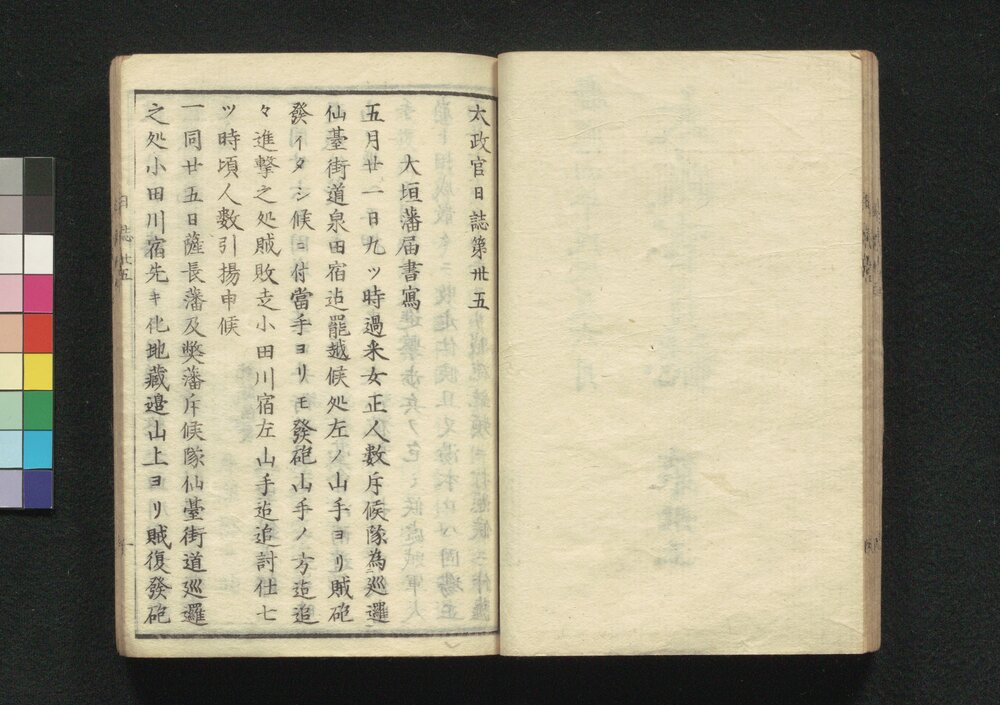 太政官日誌第卅五
大垣藩届書寫
五月廿一日九ツ時過釆女正人數斥候隊為巡邏
仙臺街道泉田宿迠罷越候処左ノ山手ヨリ賊砲
發イタシ候ニ付當手ヨリモ發砲山手ノ方迠追
々進撃之処賊敗走小田川宿左山手迠追討仕七
ツ時頃人數引揚申候
一同廿五日薩長藩及獘藩斥候隊仙臺街道巡邏
之処小田川宿先キ化地藏邉山上ヨリ賊復發砲
日誌 廿五